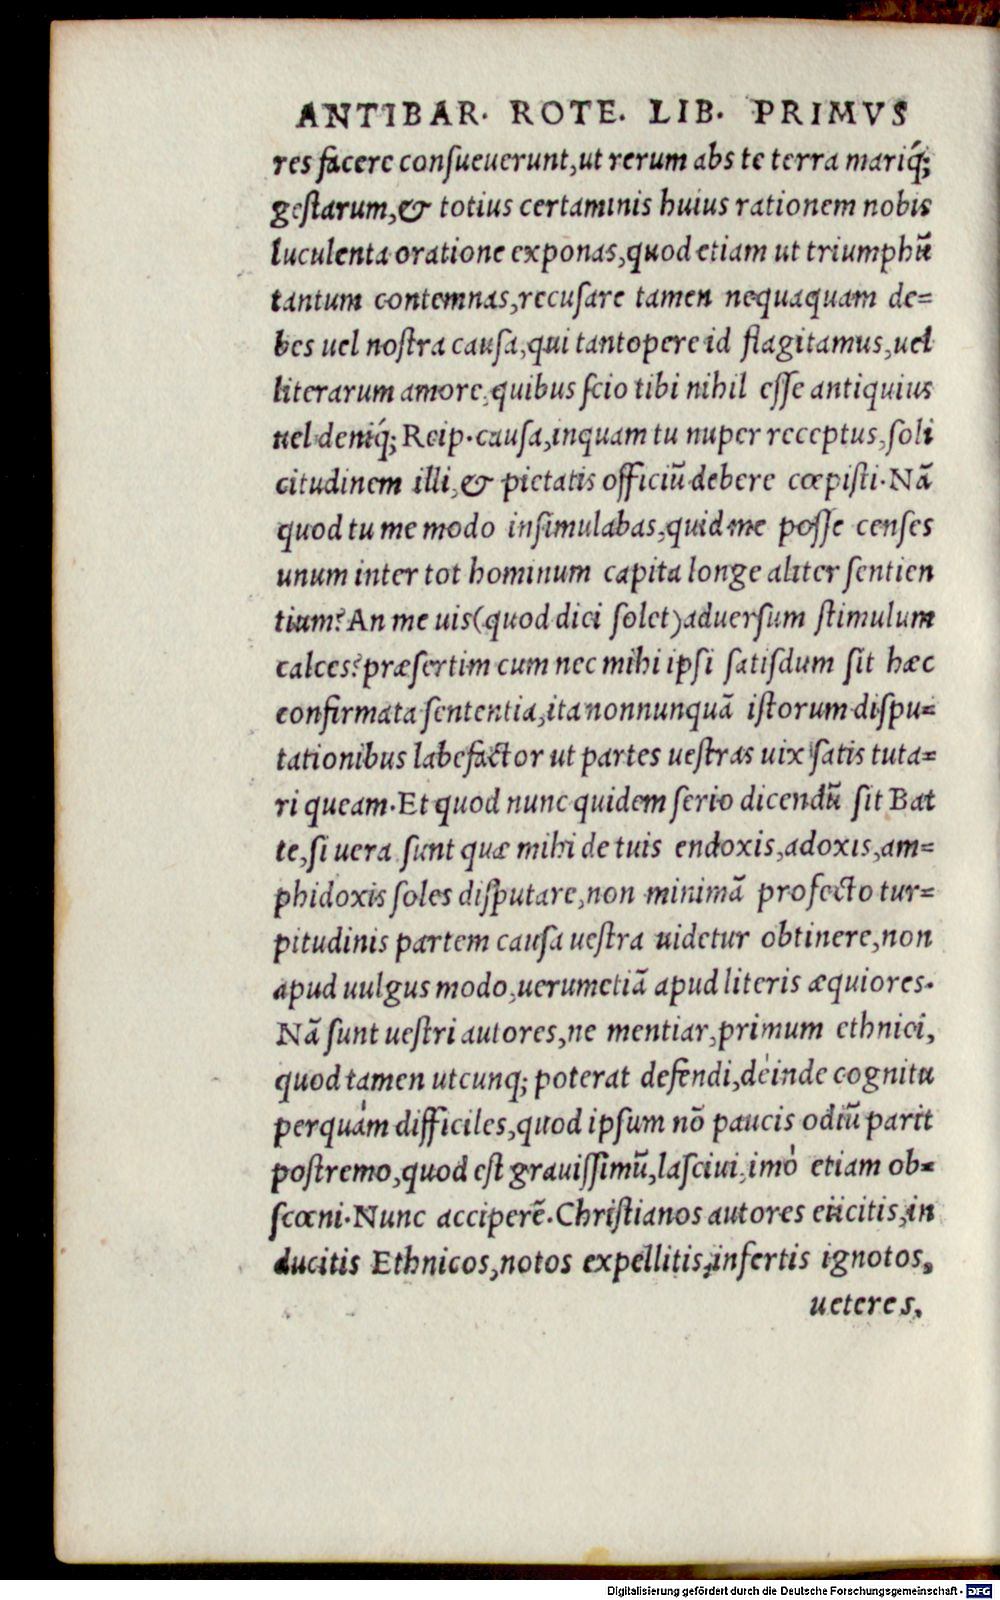 ANTIBAR. ROTE. LIB. PRIMVS
res facere consueuerunt,ut rerum abs te terra mariq́;
gestarum,& totius certaminis huius rationem nobis
luculenta oratione exponas,quod etiam ut triumphũ
tantum contemnas,recusare tamen nequaquam de=
bes uel nostra causa,qui tantopere id flagitamus,uel
literarum amore,quibus scio tibi nihil esse antiquius
uel deniq́; Reip.causa,inquam tu nuper receptus,soli
citudinem illi,& pietatis officiũ debere cœpisti.Nã
quod tu me modo insimulabas,quid me posse censes
unum inter tot hominum capita longe aliter sentien
tium?An me uis(quod dici solet)aduersum stimulum
calces?præsertim cum nec mihi ipsi satisdum sit hæc
confirmata sententia,ita nonnunquã istorum dispu=
tationibus labefactor ut partes uestras uix satis tuta=
ri queam.Et quod nunc quidem serio dicendũ sit Bat
te,si uera sunt quæ mihi de tuis endoxis,adoxis,am=
phidoxis soles disputare,non minimã profecto tur=
pitudinis partem causa uestra uidetur obtinere,non
apud uulgus modo,uerumetiã apud literis æquiores.
Nã sunt uestri autores,ne mentiar,primum ethnici,
quod tamen utcunq; poterat defendi,deinde cognitu
perquàm difficiles,quod ipsum nõ paucis odiũ parit
postremo,quod est grauissimũ,lasciui,imò etiam ob=
scœni.Nunc accipere͂.Christianos autores eiicitis,in
ducitis Ethnicos,notos expellitis,infertis ignotos,
ueteres,
Digitalisierung gefördert durch die Deutsche Forschungsgemeinschaft - DFG